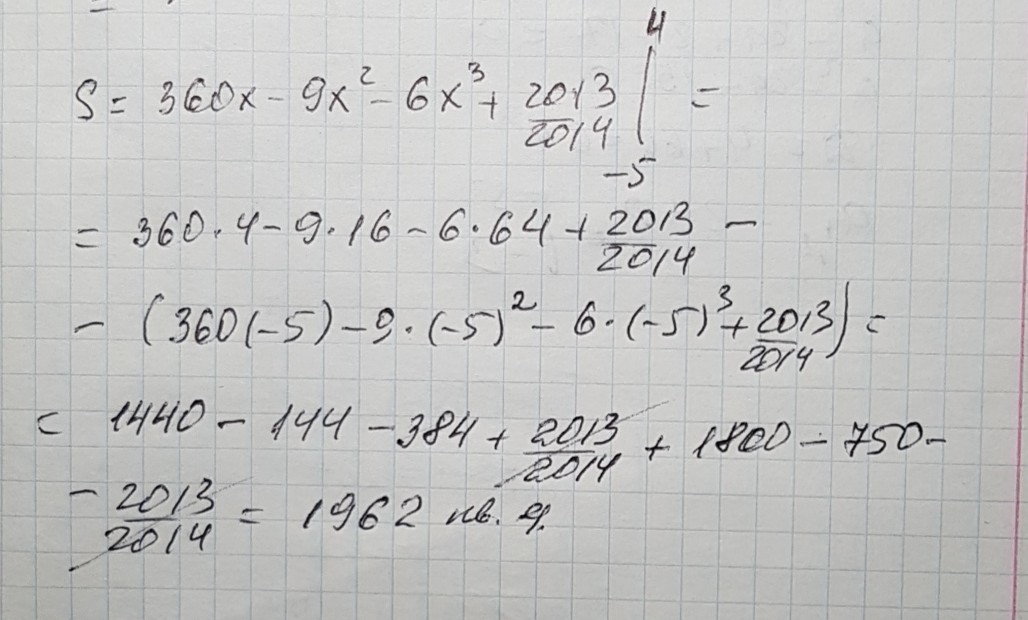 S = 360x - 9x² - 6x³ + 2013/2014 |₋₅⁴ =
= 360·4 - 9·16 - 6·64 + 2013/2014 -
- (360(-5) - 9·(-5)² - 6·(-5)³ + 2013/2014) =
= 1440 - 144 - 384 + 2013/2014 + 1800 - 750 -
- 2013/2014 = 1962 кв. ед.